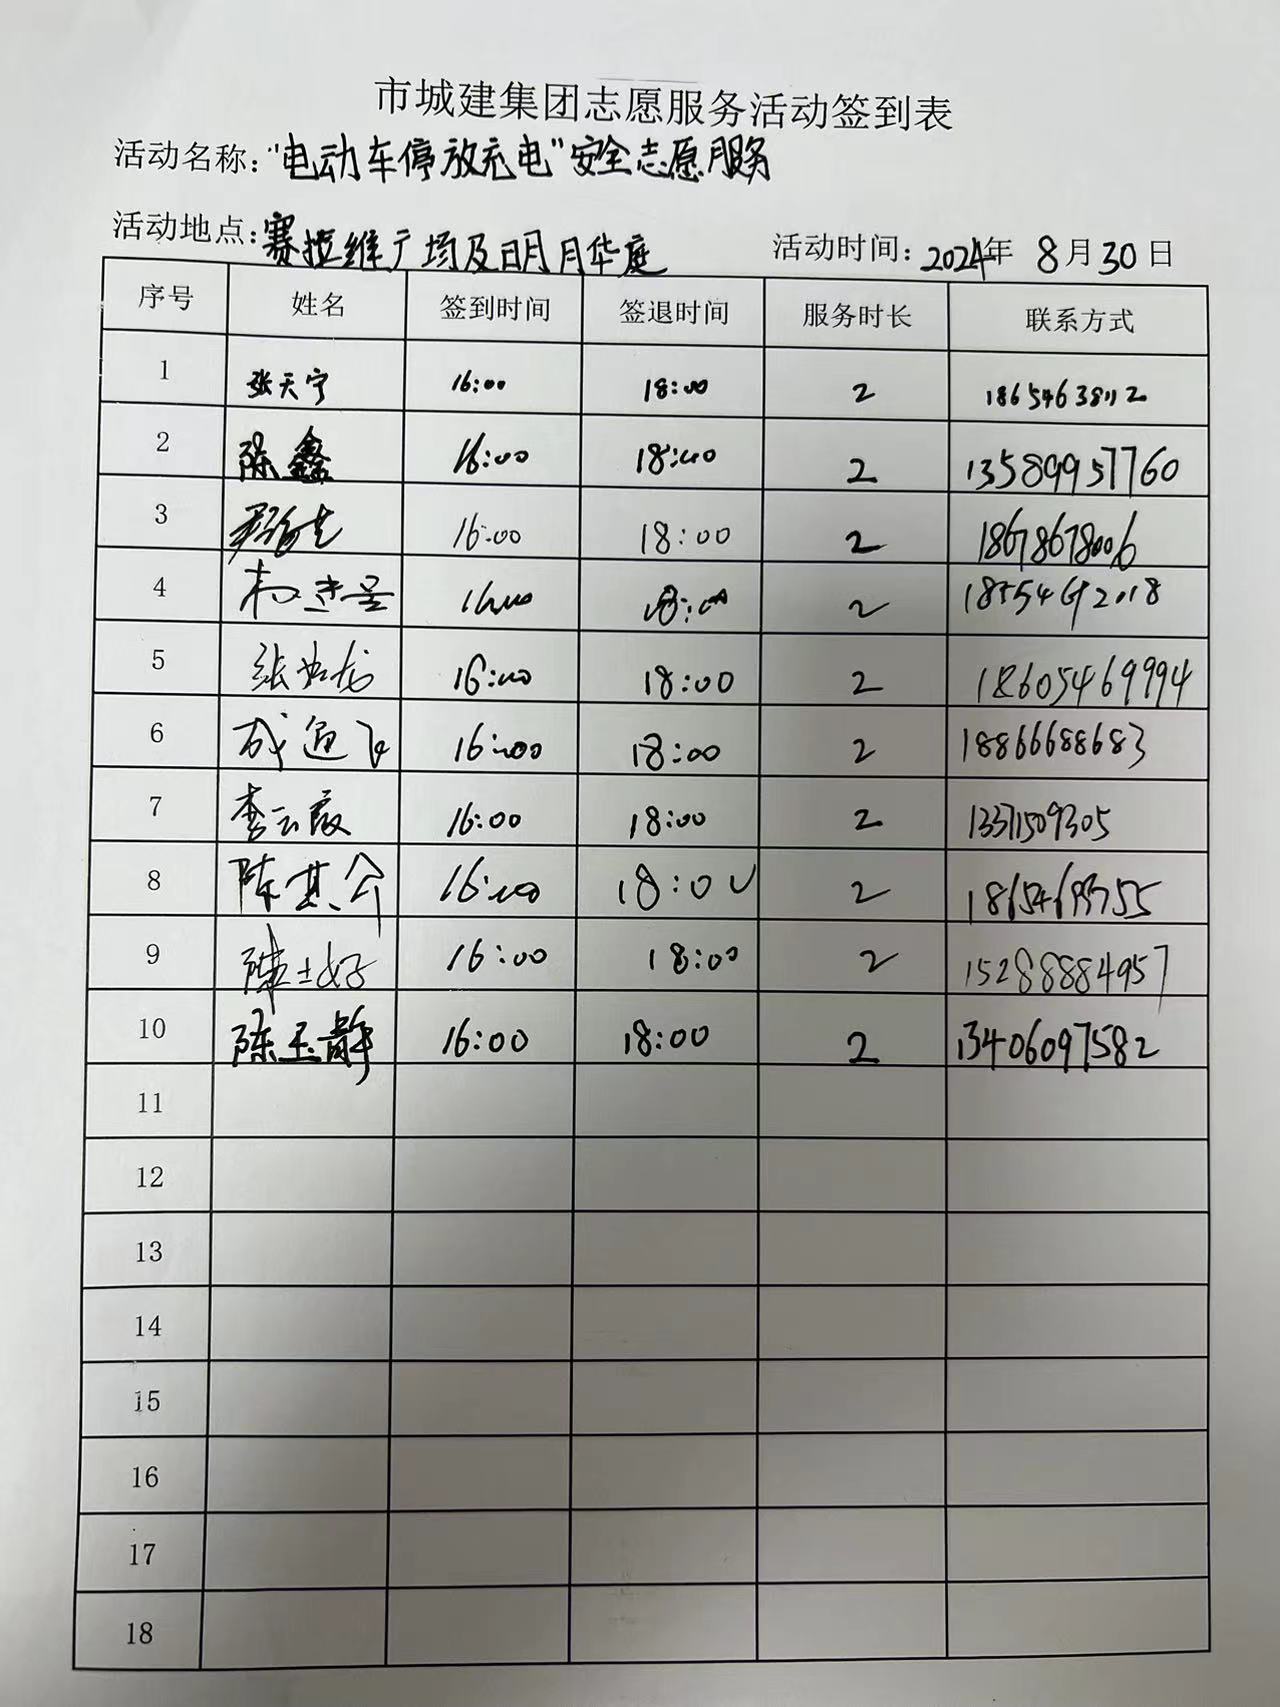 市城建集团志愿服务活动签到表
活动名称:"电动车停放充电"安全志愿服务
活动地点:赛拉维广场及明月华庭 活动时间:2024年 8月30日
序号 姓名 签到时间 签退时间 服务时长 联系方式
1 张天宁 16:00 18:00 2
2 陈鑫 16:00 18:00 2 13589957760
3 16:00 18:00 2 18678678006
4 16:00 18:00 2
5 16:00 18:00 2 18605469994
6 成通飞 16:00 18:00 2 18866688683
7 李云霞 16:00 18:00 2 13371509305
8 陈其公 16:00 18:00 2
9 16:00 18:00 2 15288884957
10 陈玉静 16:00 18:00 2 13406097582
11
12
13
14
15
16
17
18